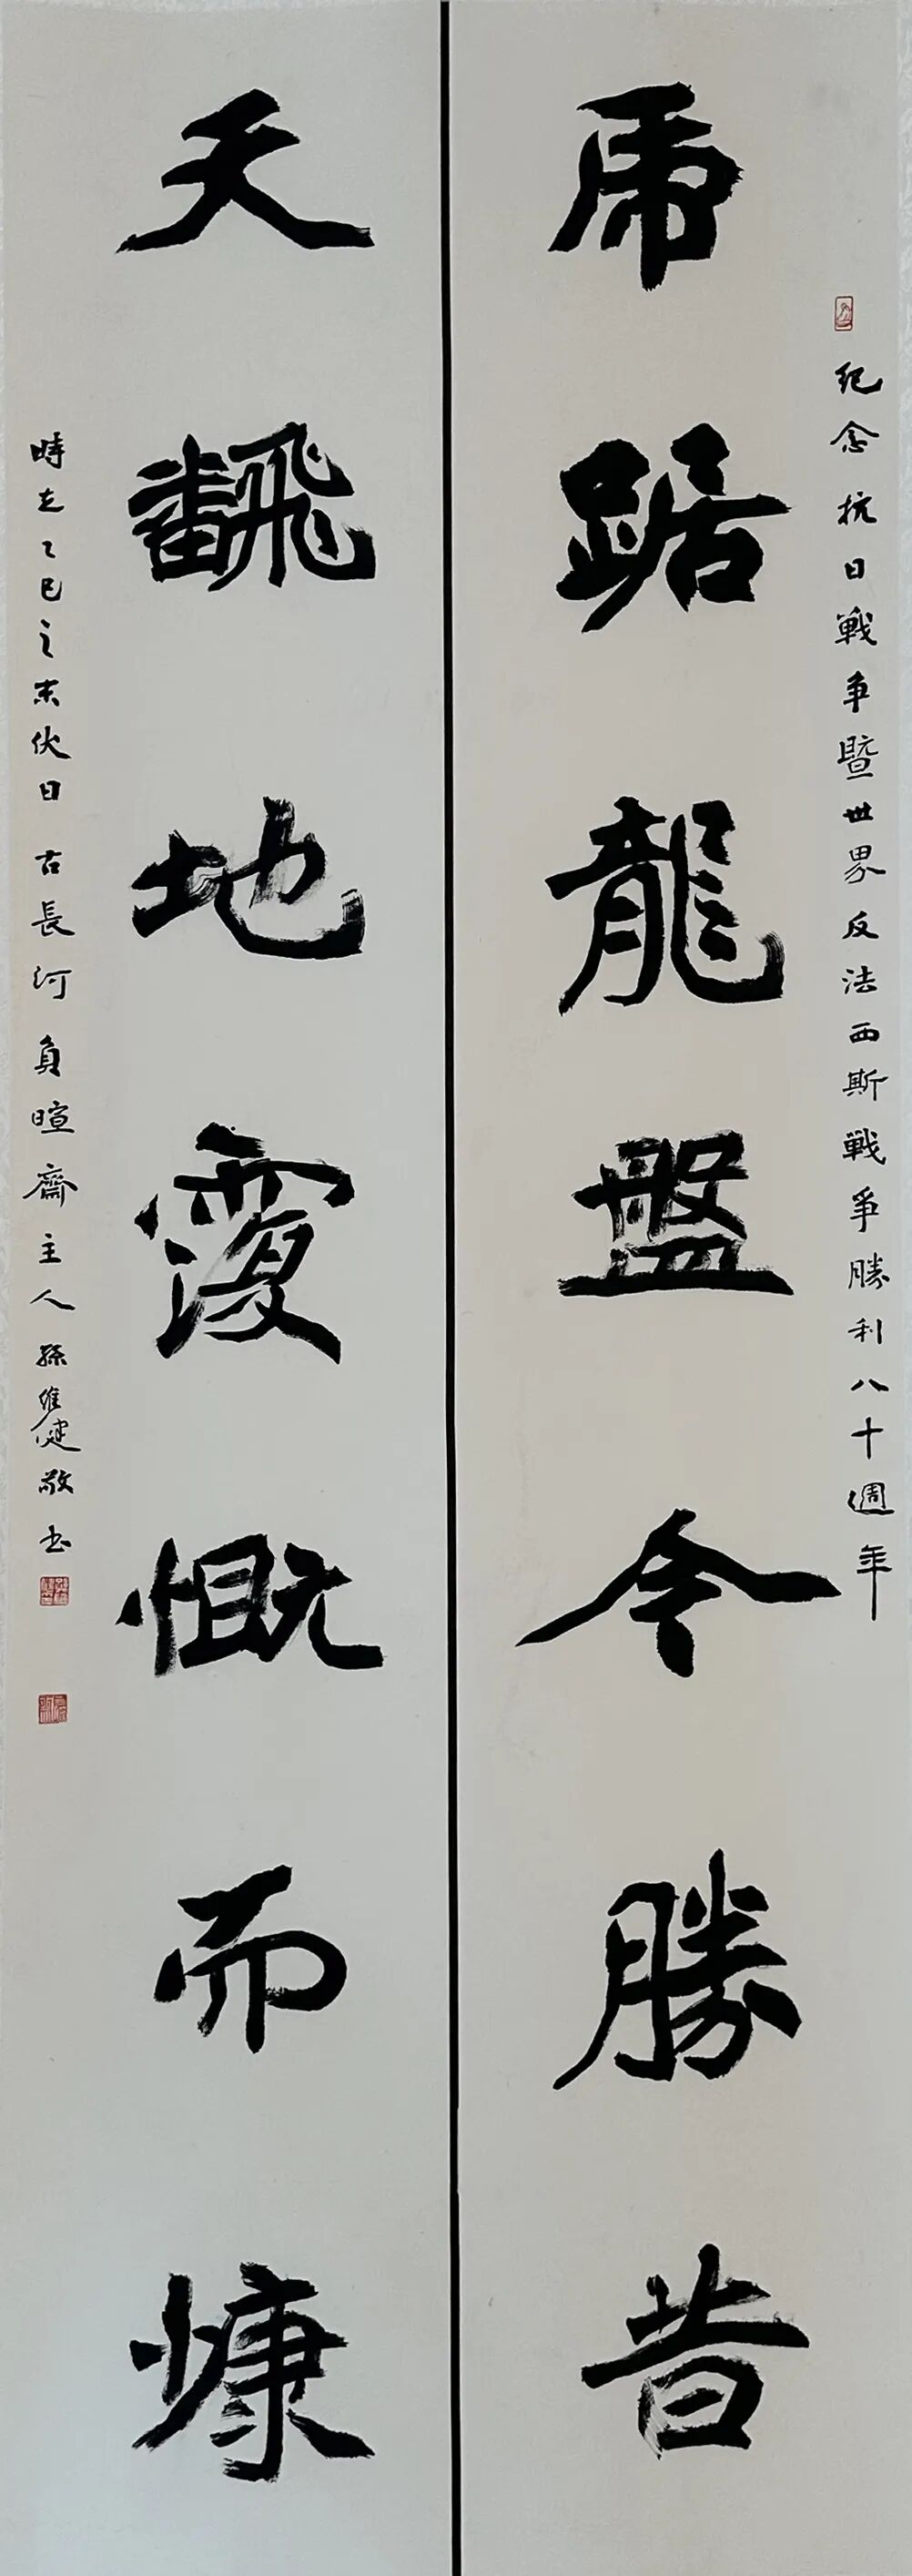 紀念抗日戰爭暨世界反法西斯戰爭勝利八十週年
虎踞龍盤今勝昔
天飜地覆慨而慷
時在乙巳之末伏日古長河負暄齋主人孫維健敬书